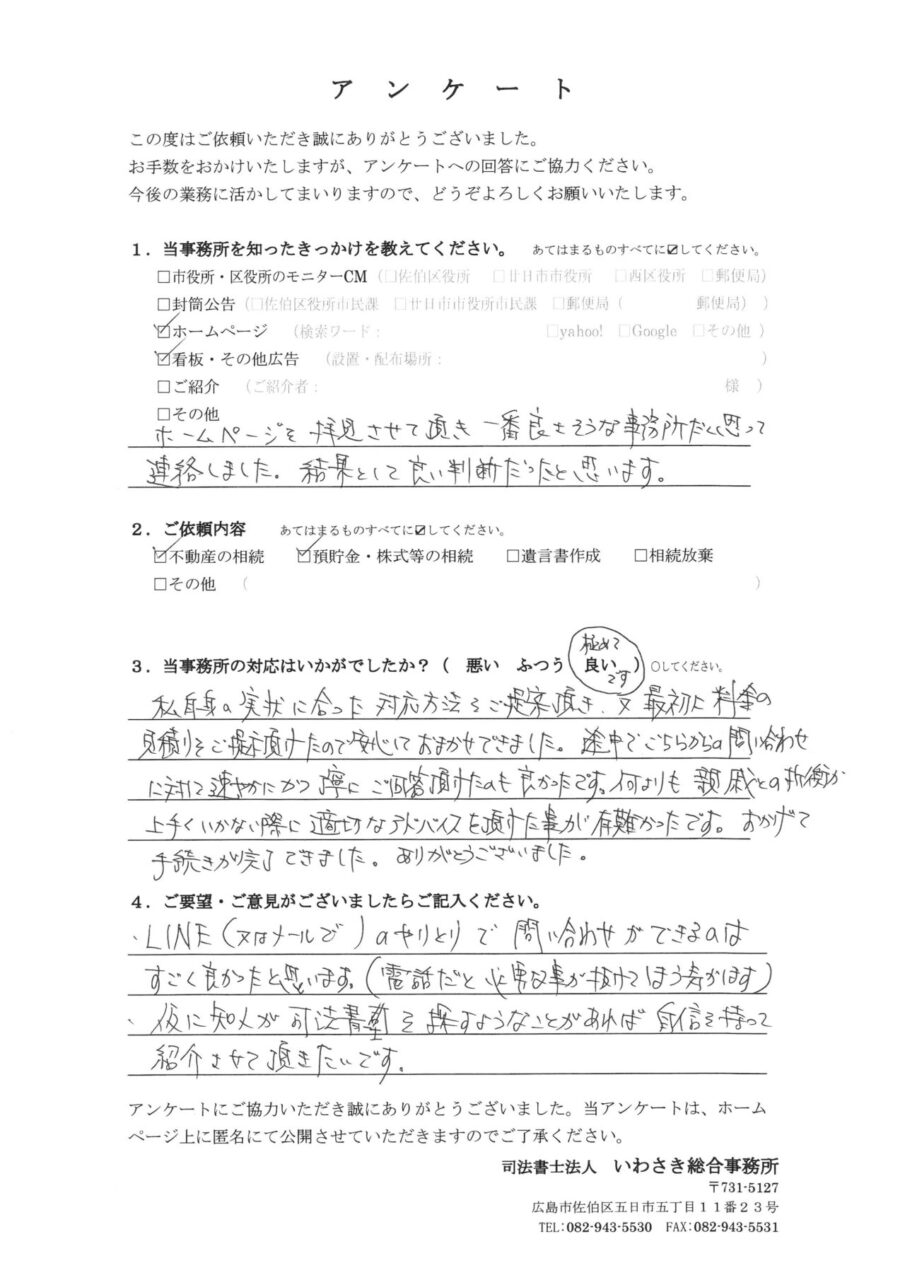 アンケート
この度はご依頼いただき誠にありがとうございました。
お手数をおかけいたしますが、アンケートへの回答にご協力ください。
今後の業務に活かしてまいりますので、どうぞよろしくお願いいたします。
１．当事務所を知ったきっかけを教えてください。 あてはまるものすべてに☑してください。
□市役所・区役所のモニターCM（□佐伯区役所 □廿日市市役所 □西区役所 □郵便局）
□封筒公告（□佐伯区役所市民課 □廿日市市役所市民課 □郵便局（ 郵便局））
☑ホームページ （検索ワード： □yahoo! □Google □その他 ）
☑看板・その他広告 （設置・配布場所： ）
□ご紹介 （ご紹介者： 様 ）
□その他
ホームページを拝見させて頂き 一番良さそうな事務所だと思って
連絡しました。結果として良い判断だったと思います。
２．ご依頼内容 あてはまるものすべてに☑してください。
☑不動産の相続 ☑預貯金・株式等の相続 □遺言書作成 □相続放棄
□その他 （ ）
極めて
３．当事務所の対応はいかがでしたか？（ 悪い ふつう 良い ）○してください。
です
私自身の実状に合った対応方法をご提案頂き、又最初に料金の
見積りをご提示頂けたので安心しておまかせできました。途中でこちらからの問い合わせ
に対して速やかにかつ丁寧にご回答頂けたのも良かったです。何よりも親戚との折衝が
上手くいかない際に適切なアドバイスを頂けた事が有難かったです。おかげで
手続きが完了できました。ありがとうございました。
４．ご要望・ご意見がございましたらご記入ください。
・LINE（又はメールで）のやりとりで問い合わせができるのは
すごく良かったと思います。（電話だと必要な事が抜けてしまう為があります）
・仮に知人が司法書士を探すようなことがあれば自信を持って
紹介させて頂きたいです。
アンケートにご協力いただき誠にありがとうございました。当アンケートは、ホーム
ページ上に匿名にて公開させていただきますのでご了承ください。
司法書士法人 いわさき総合事務所
〒731-5127
広島市佐伯区五日市五丁目１１番２３号
TEL:082-943-5530 FAX:082-943-5531